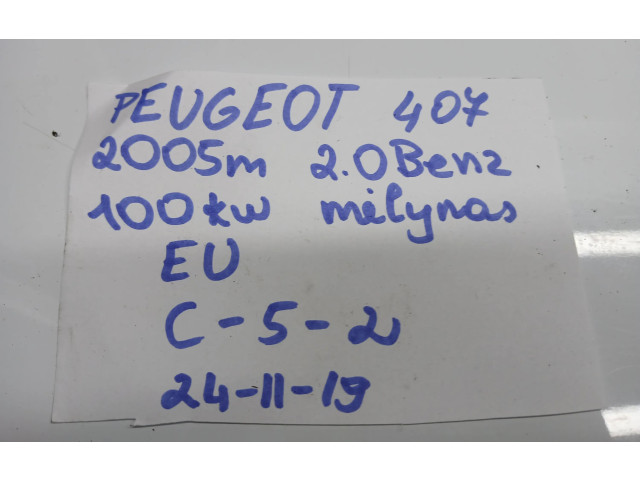 PEUGEOT 407
2005m 2.0 Benz
100kw mėlynas
EU
C-5-2
24-11-19